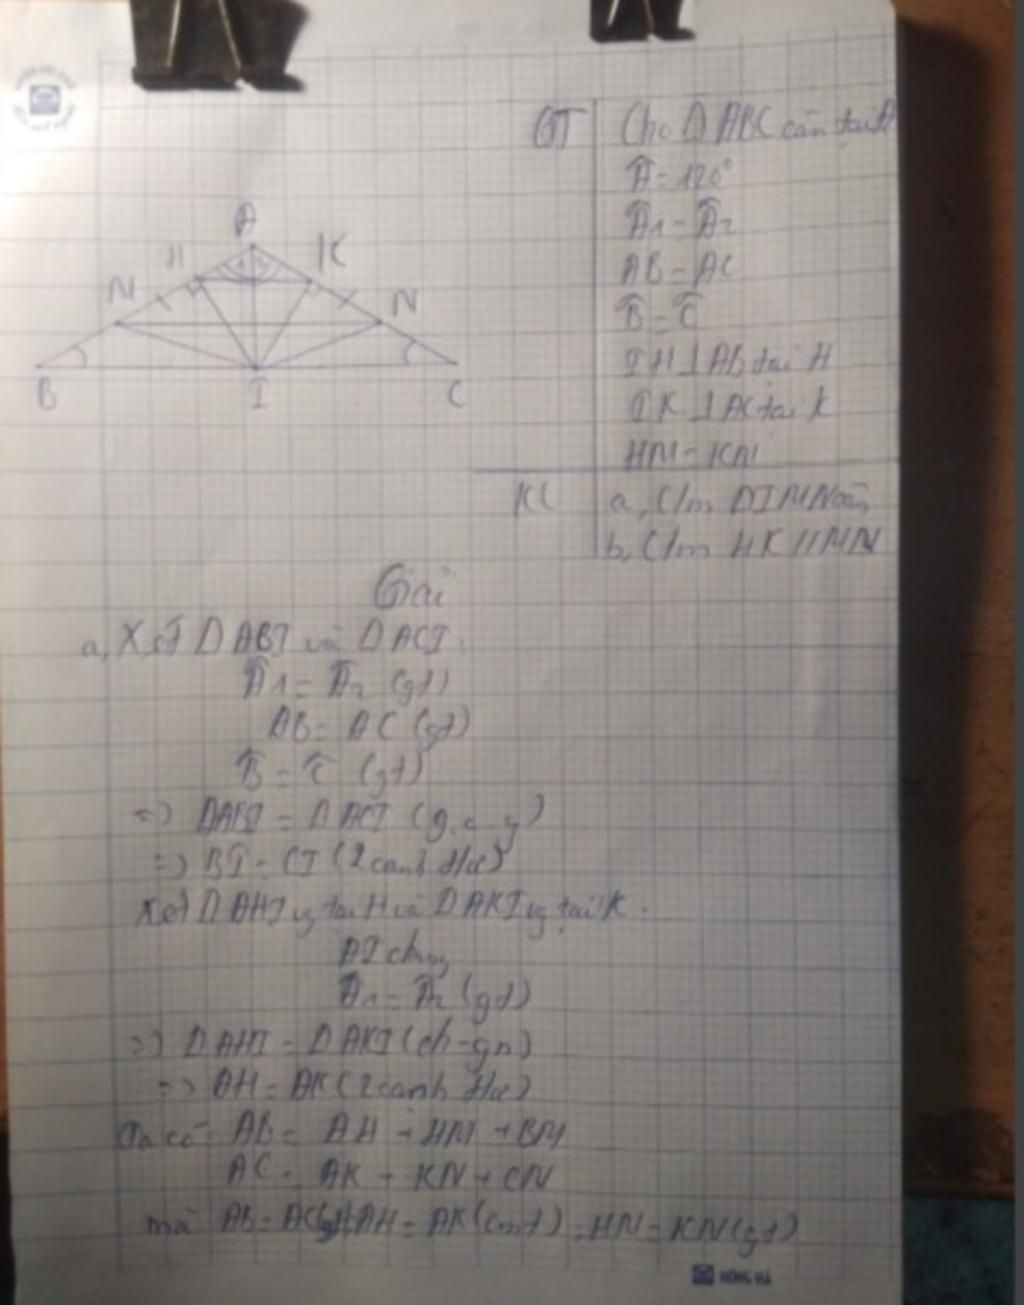 GT Cho Δ ABC cân tại A
Â = 120°
Â1 = Â2
AB = AC
B̂ = Ĉ
IH ⊥ AB tại H
IK ⊥ AC tại K
HM = KN
KL a, C/m ΔIMN cân
b, C/m HK // MN
A
H K
M N
B I C
Giải
a, Xét Δ ABI và Δ ACI:
Â1 = Â2 (gt)
AB = AC (gt)
B̂ = Ĉ (gt)
=> ΔABI = Δ ACI (g.c.g)
=> BI = CI (2 cạnh t/ư)
Xét Δ AHI vg tại H và Δ AKI vg tại K.
AI chung
Â1 = Â2 (gt)
=> Δ AHI = Δ AKI (ch-gn)
=> AH = AK (2 cạnh t/ư)
Ta có AB = AH + HM + BM
AC = AK + KN + CN
mà AB = AC (gt) AH = AK (cmt), HM = KN (gt)
HỒNG HÀ